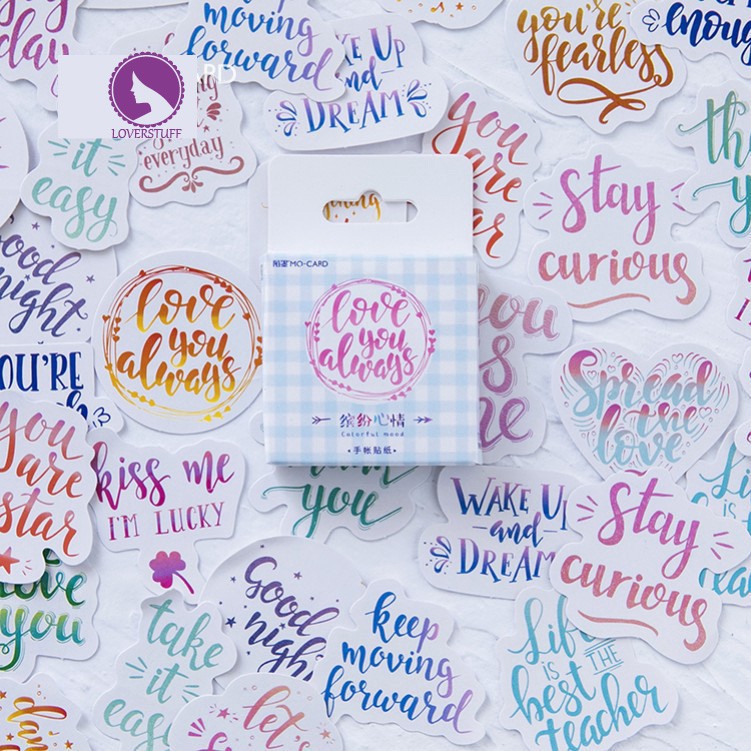 day
moving
forward
you're
fearless
enough
WAKE UP
and
DREAM
LOVERSTUFF
RD
it
easy
everyday
you
are
star
Stay
curious
good
night
love
you
always
陌墨 MO-CARD
love
you
always
缤纷心情
Colorful mood
·手帐贴纸·
YOU'RE
you
are
star
kiss me
I'M LUCKY
you
Spread
the
love
WAKE UP
and
DREAM
Stay
curious
love
you
Good
night
take
it
easy
keep
moving
forward
Life
IS THE
best
teacher
let's